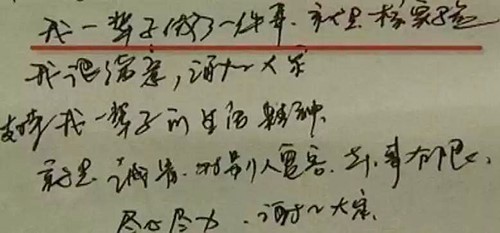 我一辈子做了一件事，就是核实验
我很满意，谢谢大家
支持我一辈子的生活精神，
就是诚实，对别人宽容，对事有恒心，
尽心尽力，谢谢大家